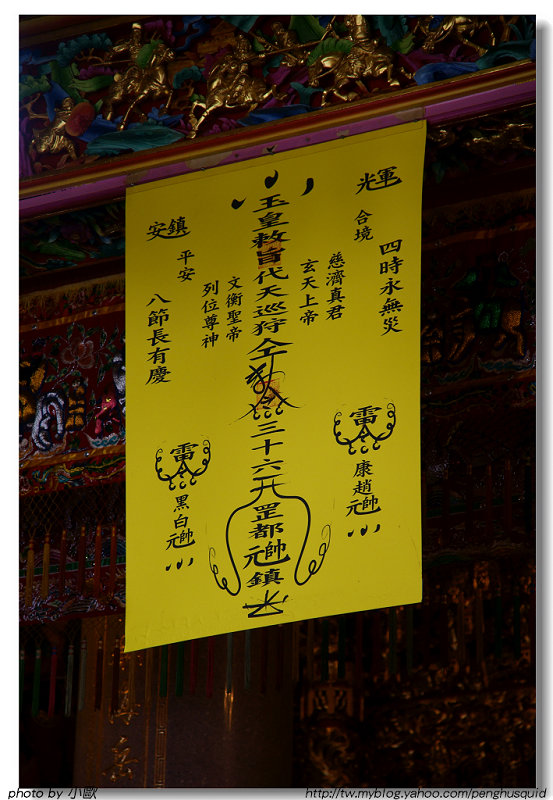 輝
合境
四時永無災
慈濟真君
玄天上帝
玉皇敕旨代天巡狩
三十六
罡都元帥鎮
文衡聖帝
列位尊神
鎮安
平安
八節長有慶
雷
康趙元帥
雷
黑白元帥
photo by 小歐
http://tw.myblog.yahoo.com/penghusquid